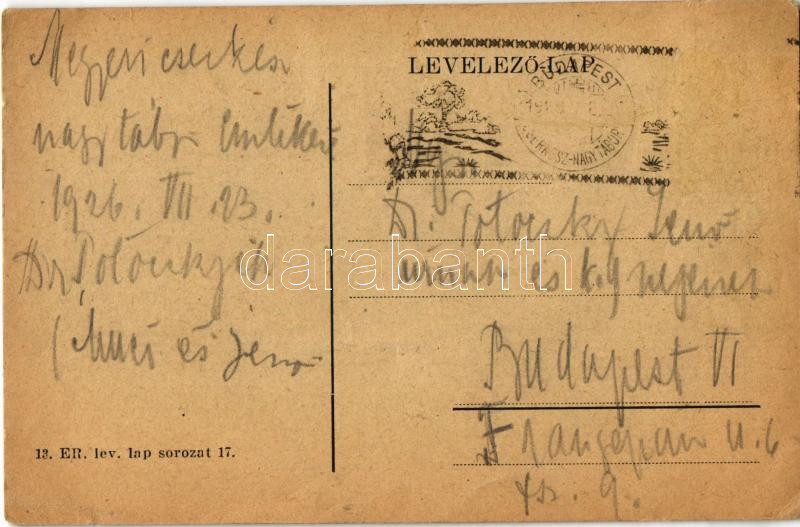 Megyeri cserkész
nagytábor emlékére
1926. VII. 23.
Dr. Potoczkyék
(Muci és Jenő
13. ER. lev. lap sorozat 17.
LEVELEZŐ-LAP
BUDAPEST
CSERKÉSZ-NAGYTÁBOR
Dr. Potoczky Jenő
úrnak és k. g
Budapest VI
u. 6
fsz. 9.
darabanth